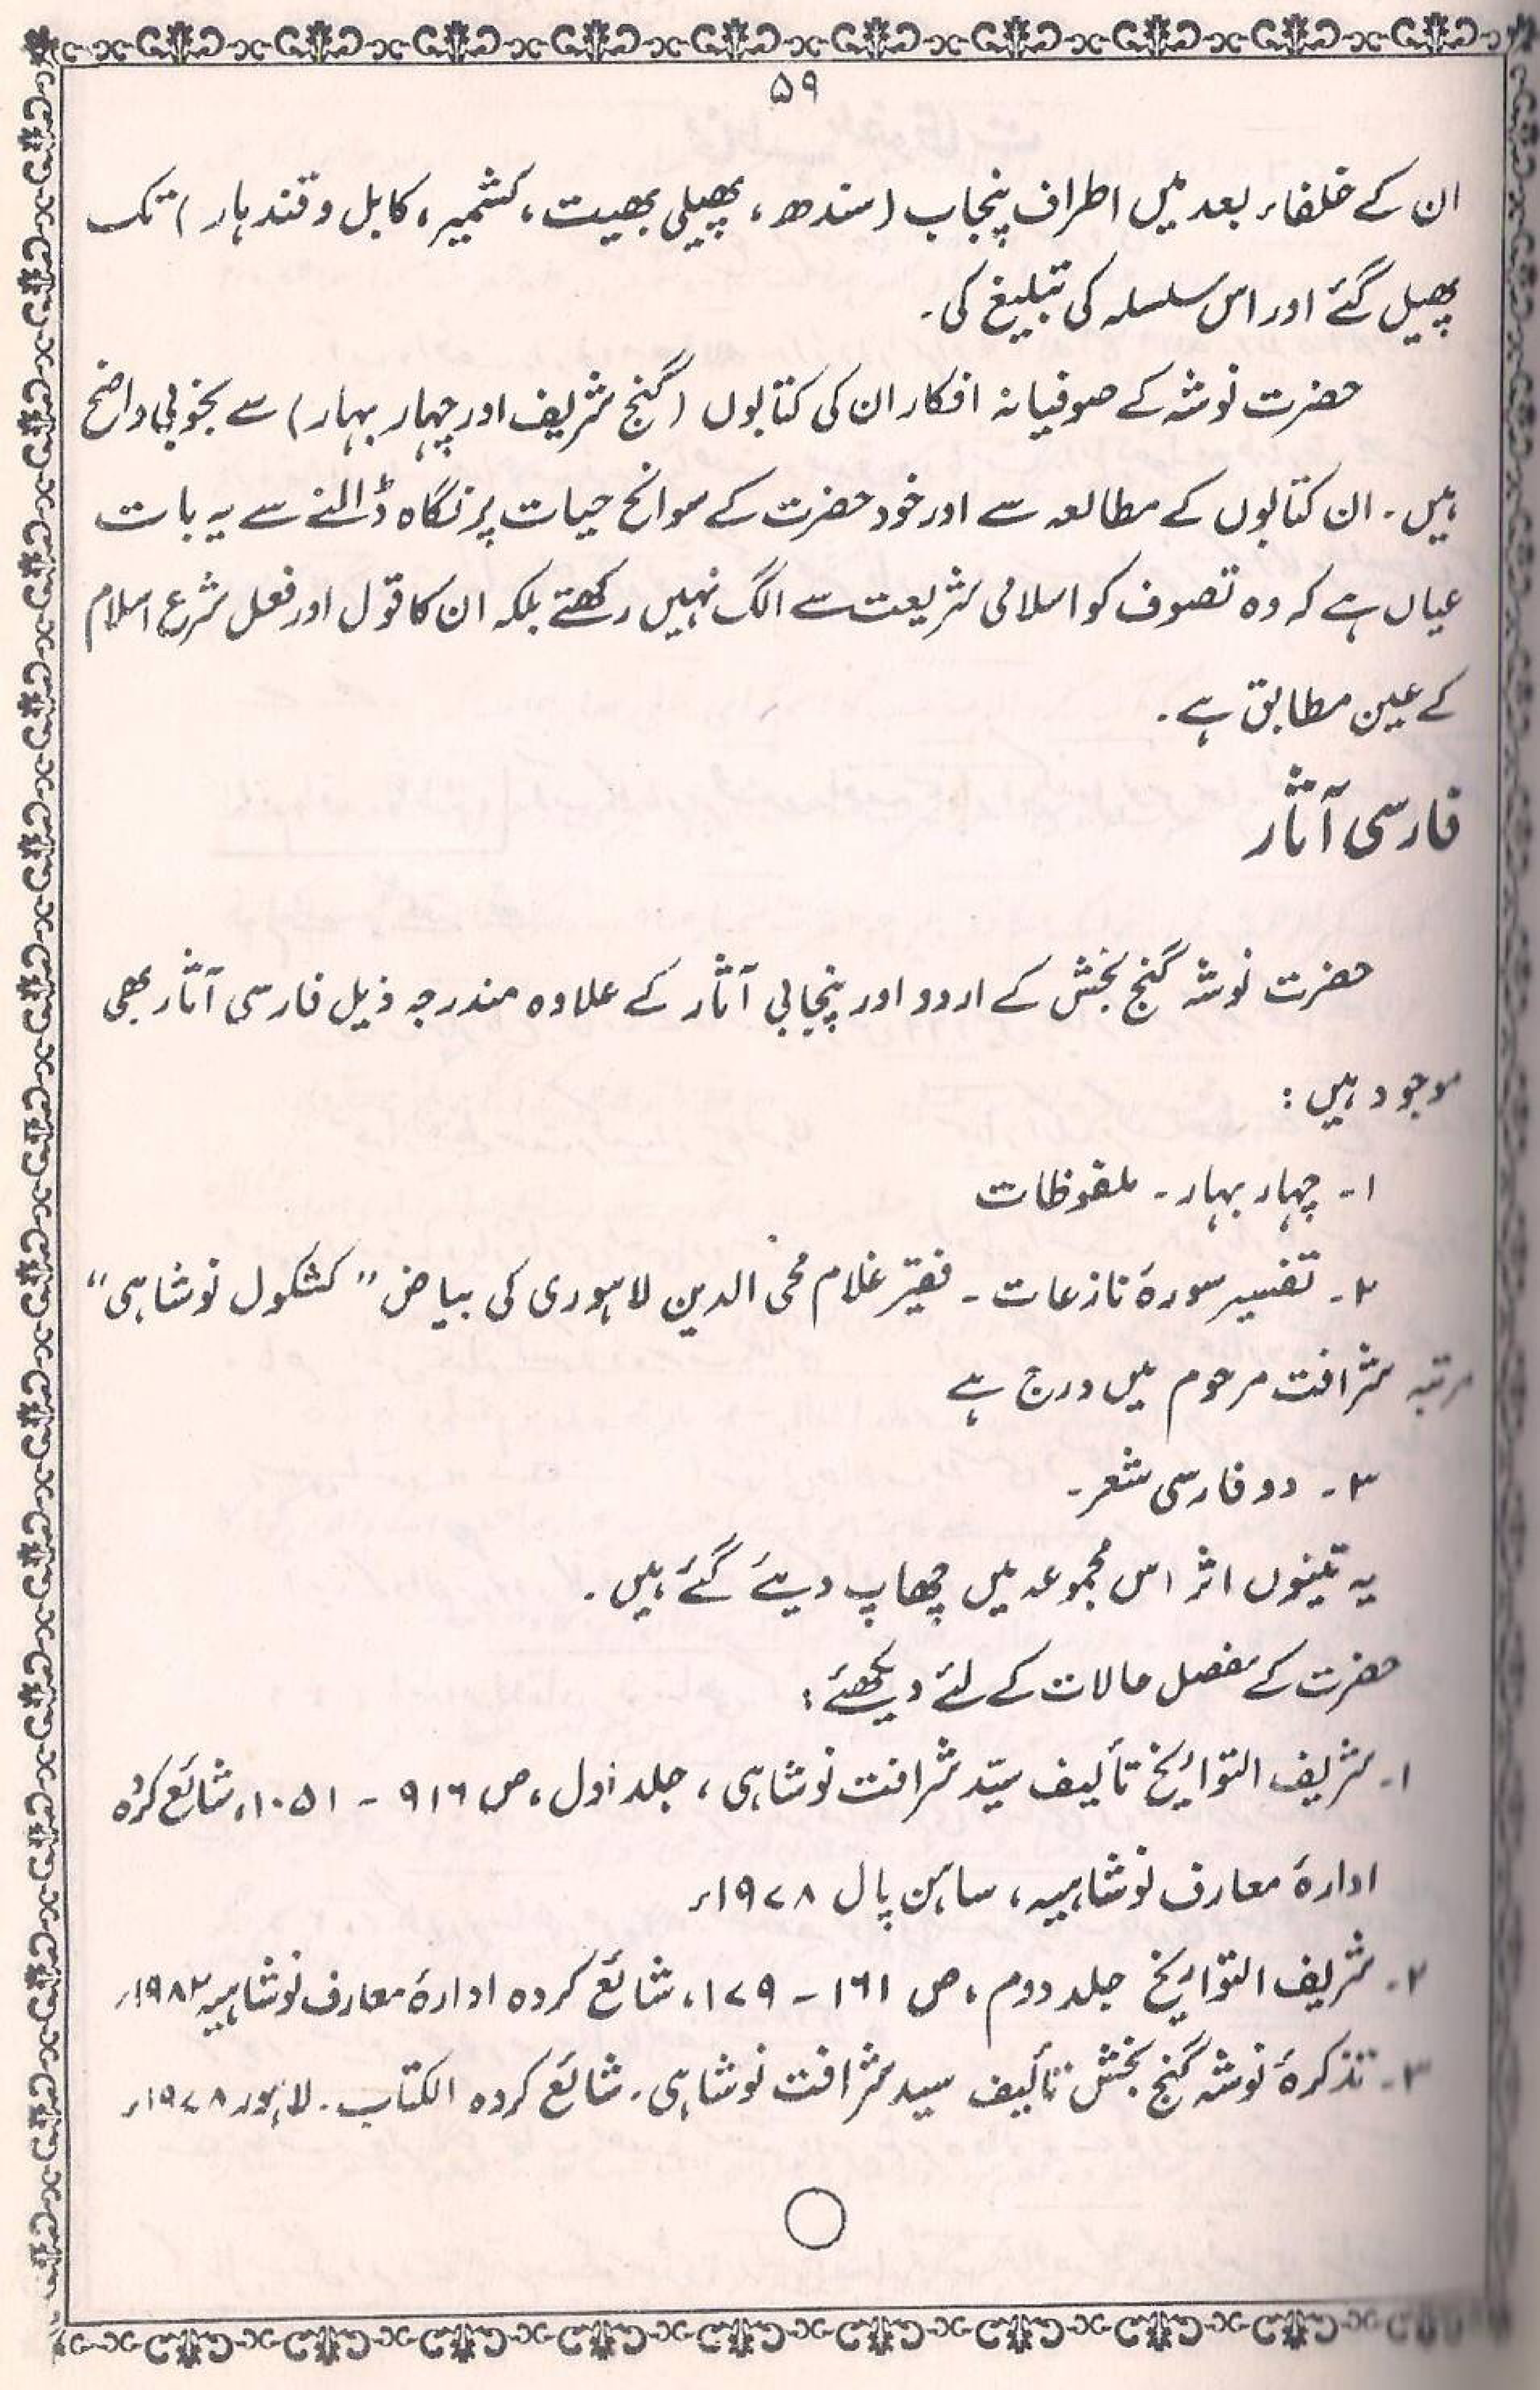 ۵۹
ان کے خلفاء بعد میں اطراف پنجاب (سندھ، پھیلی بھیت، کشمیر، کابل و قندہار) تک
پھیل گئے اور اس سلسلہ کی تبلیغ کی۔
حضرت نوشہ کے صوفیانہ افکار ان کی کتابوں (گنج شریف اور چہار بہار) سے بخوبی واضح
ہیں۔ ان کتابوں کے مطالعہ سے اور خود حضرت کے سوانح حیات پر نگاہ ڈالنے سے یہ بات
عیاں ہے کہ وہ تصوف کو اسلامی شریعت سے الگ نہیں رکھتے بلکہ ان کا قول اور فعل شرع اسلام
کے عین مطابق ہے۔
فارسی آثار
حضرت نوشہ گنج بخش کے اردو اور پنجابی آثار کے علاوہ مندرجہ ذیل فارسی آثار بھی
موجود ہیں:
۱۔ چہار بہار۔ ملفوظات
۲۔ تفسیر سورۂ نازعات۔ فقیر غلام محی الدین لاہوری کی بیاض "کشکول نوشاہی"
مرتبہ شرافت مرحوم میں درج ہے
۳۔ دو فارسی شعر۔
یہ تینوں اثر اس مجموعہ میں چھاپ دیئے گئے ہیں۔
حضرت کے مفصل حالات کے لئے دیکھئے:
۱۔ شریف التواریخ تألیف سیّد شرافت نوشاہی، جلد اول، ص ۹۱۶ - ۱۰۵۱، شائع کردہ
ادارۂ معارف نوشاہیہ، ساہن پال ۱۹۷۸ء
۲۔ شریف التواریخ جلد دوم، ص ۱۶۱ - ۱۷۹، شائع کردہ ادارۂ معارف نوشاہیہ ۱۹۸۲ء
۳۔ تذکرۂ نوشہ گنج بخش تألیف سید شرافت نوشاہی۔ شائع کردہ الکتاب۔ لاہور ۱۹۷۸ء